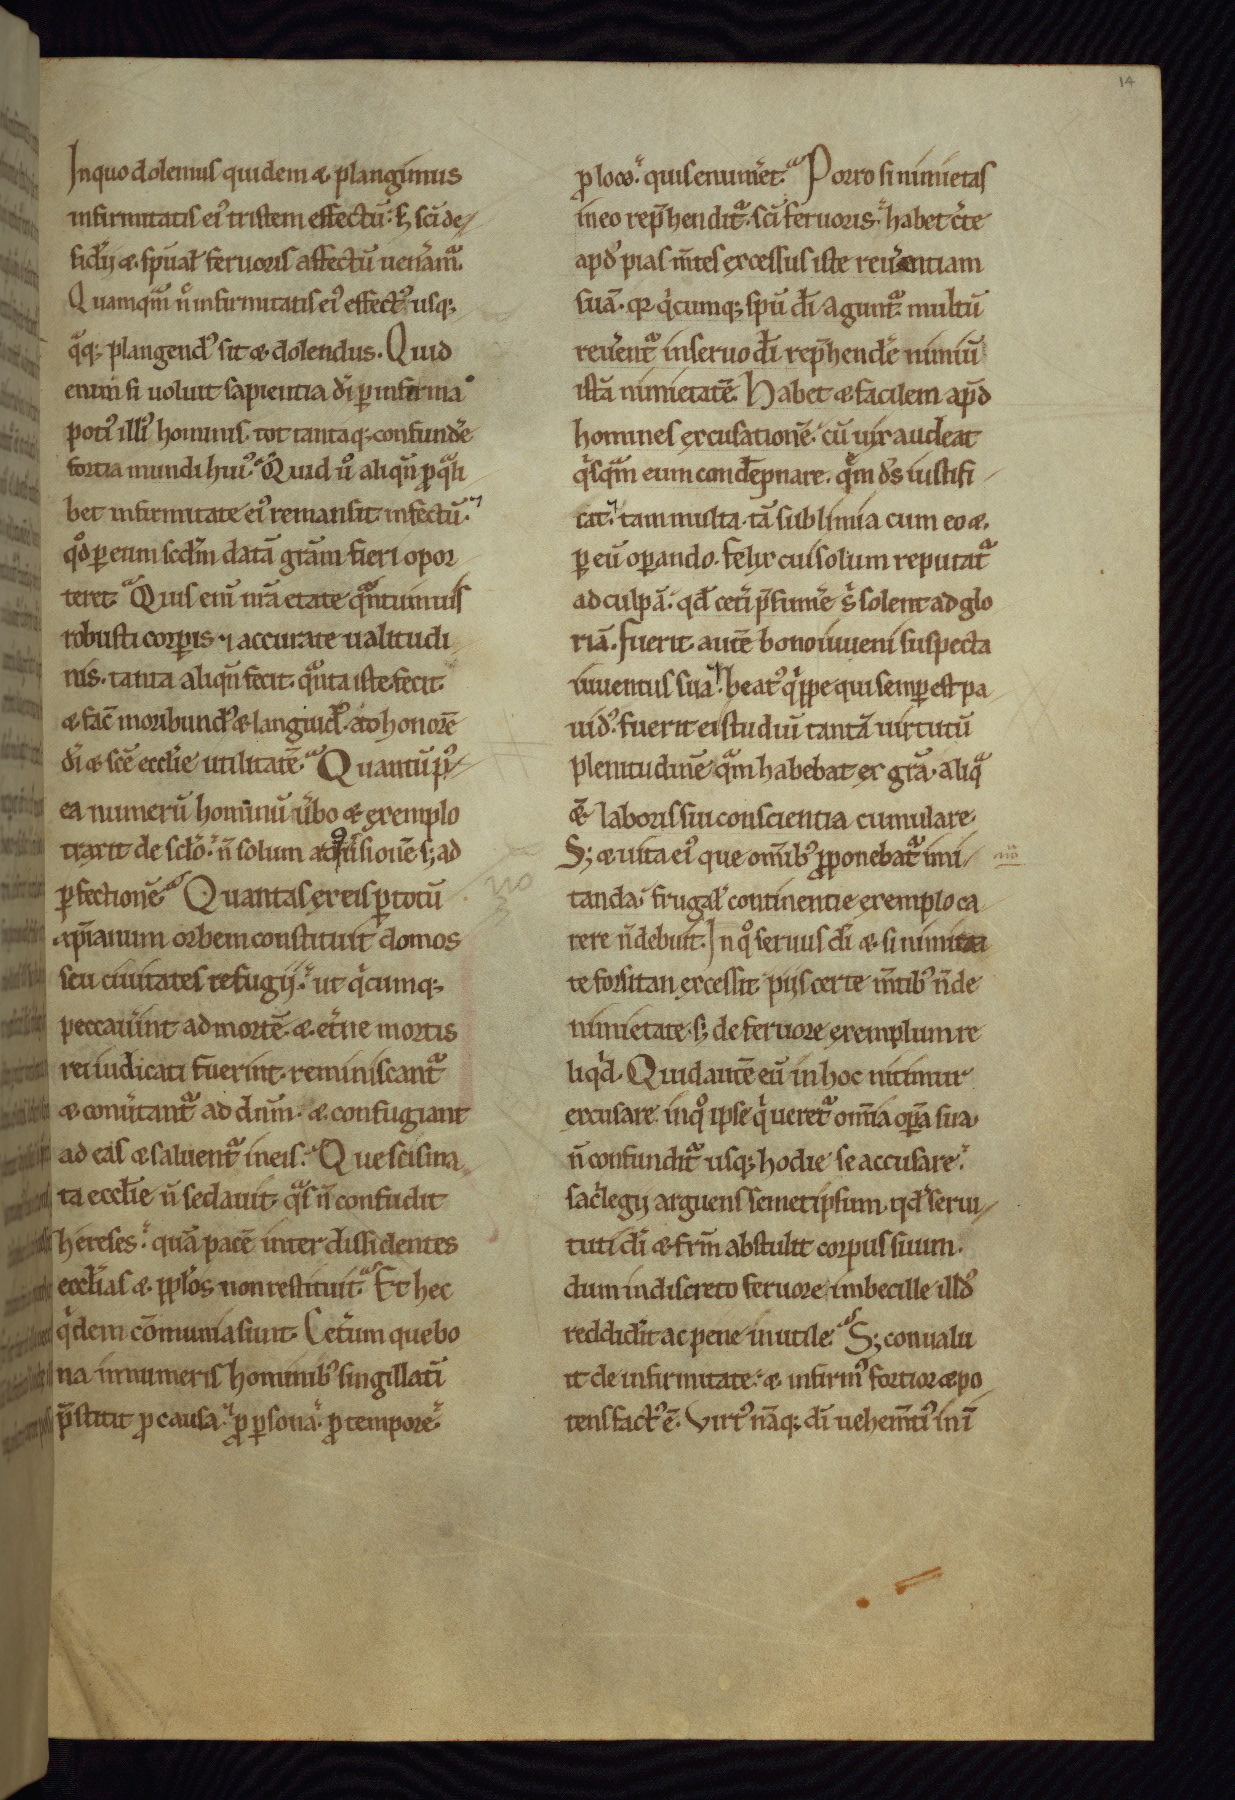 14
In quo dolemus quidem & plangimus
infirmitatis ei᾽ tristem effectū: s; sc̄i de-
siderij & spūal᾽ feruoris affectū uen̄amᷓ.
Quamqᷓm n̄ infirmitatis ei᾽ effect᾽ usq;
qᷓq; plangend᾽ sit & dolendus. Quid
enim si uoluit sapientia d̄i ꝑ infirma
poti᾽ illi᾽ hominis. tot tantaq; confund̄e
fortia mundi hui᾽. Quid u᾽ aliqn̄ ꝓ qᷓli
bet infirmitate ei᾽ remansit infectū.
qd̄ ꝑ eum scd̄m datā gr̄am fieri opor
teret. Quis eni᾽ nr̄a etate qᷓntumuis
robusti corꝑis ⁊ accurate ualitudi
nis. tanta aliqn̄ fecit. qᷓnta iste fecit
& fac̄ moribund᾽ & languid᾽. ad honorē
d̄i & sc̄e eccl̄ie utilitatē. Quantū p᾽
ea numerū hominū u̅bo & exemplo
traxit de sc̄lo. n̄ solum ad ꝯu̅sionē s; ad
ꝑfectionē. Quantas ex eis ꝑ totū
xp̄ianum orbem constituit domos
seu ciuitates refugij. ut qͥcumq;
peccau̅int ad mortē. & et̄ne mortis
rei iudicati fuerint. reminiscantᷓ
& conu̅tantᷓ ad dn̄m. & confugiant
ad eas & saluentᷓ in eis. Que scisma
ta eccl̄ie n̄ sedauit. qᷓs n̄ confudit
hereses. quā pacē inter dissidentes
eccl̄ias & ppl̄os non restituit. Et hec
qͥdem cōmunia sunt. Cet̄um que bo
na innumeris hominib᾽ singillatī
p̄stitit pro causa. ꝓ ꝑsona. pro tempore.
ꝓ loco. quis enum̄et. Porro si nimietas
in eo rep̄henditᷓ. sc̄i feruoris. habet c̄te
apd᾽ pias m̄tes excessus iste reu̅entiam
suā. qr qͥcumq; spū d̄i aguntᷓ. multū
reu̅entᷓ in seruo d̄i rep̄hend̄e nimiū
istā nimietatē. Habet & facilem apd̄
homines excusationē. cū uix audeat
qͥsqᷓm eum condēpnare. qᷓm d̄s iustifi
cat. tam multa. tā sublimia cum eo &
ꝑ eū oꝑando. Felix cui solum reputatᷓ
ad culpā. qd̄ cet̄i p̄sum̄e s᾽ solent ad glo
riā. Fuerit autē bono iuueni suspecta
iuuentus sua. beat᾽ qͥppe qui semꝑ est pa
uid᾽. fuerit ei studiū tantā uirtutū
plenitudinē qᷓm habebat ex gr̄a. aliqᷓ
& laboris sui conscientia cumulare.
S; & uita ei᾽ que om̄ib᾽ ꝓponebatᷓ imi
tanda. frugal᾽ continentie exemplo ca
rere n̄ debuit. In qͦ seruus d̄i & si nimieta
te forsitan excessit piis certe m̄tib᾽ n̄ de
nimietate. s; de feruore exemplum re
liqͥd. Quid autē eū in hoc nitimur
excusare. in qͦ ipse qͥ ueretᷓ om̄ia oꝑa sua.
n̄ confunditᷓ usq; hodie se accusare.
sac̄legij arguens semetipsum. qd̄ serui
tuti d̄i & fr̄m abstulit corpus suum.
dum indiscreto feruore imbecille illd᾽
reddidit ac pene inutile. S; conualu
it de infirmitate. & infirm᾽ fortior & po
tens fact᾽ ē. Virt᾽ nāq; d̄i uehem̄ti᾽ in ī